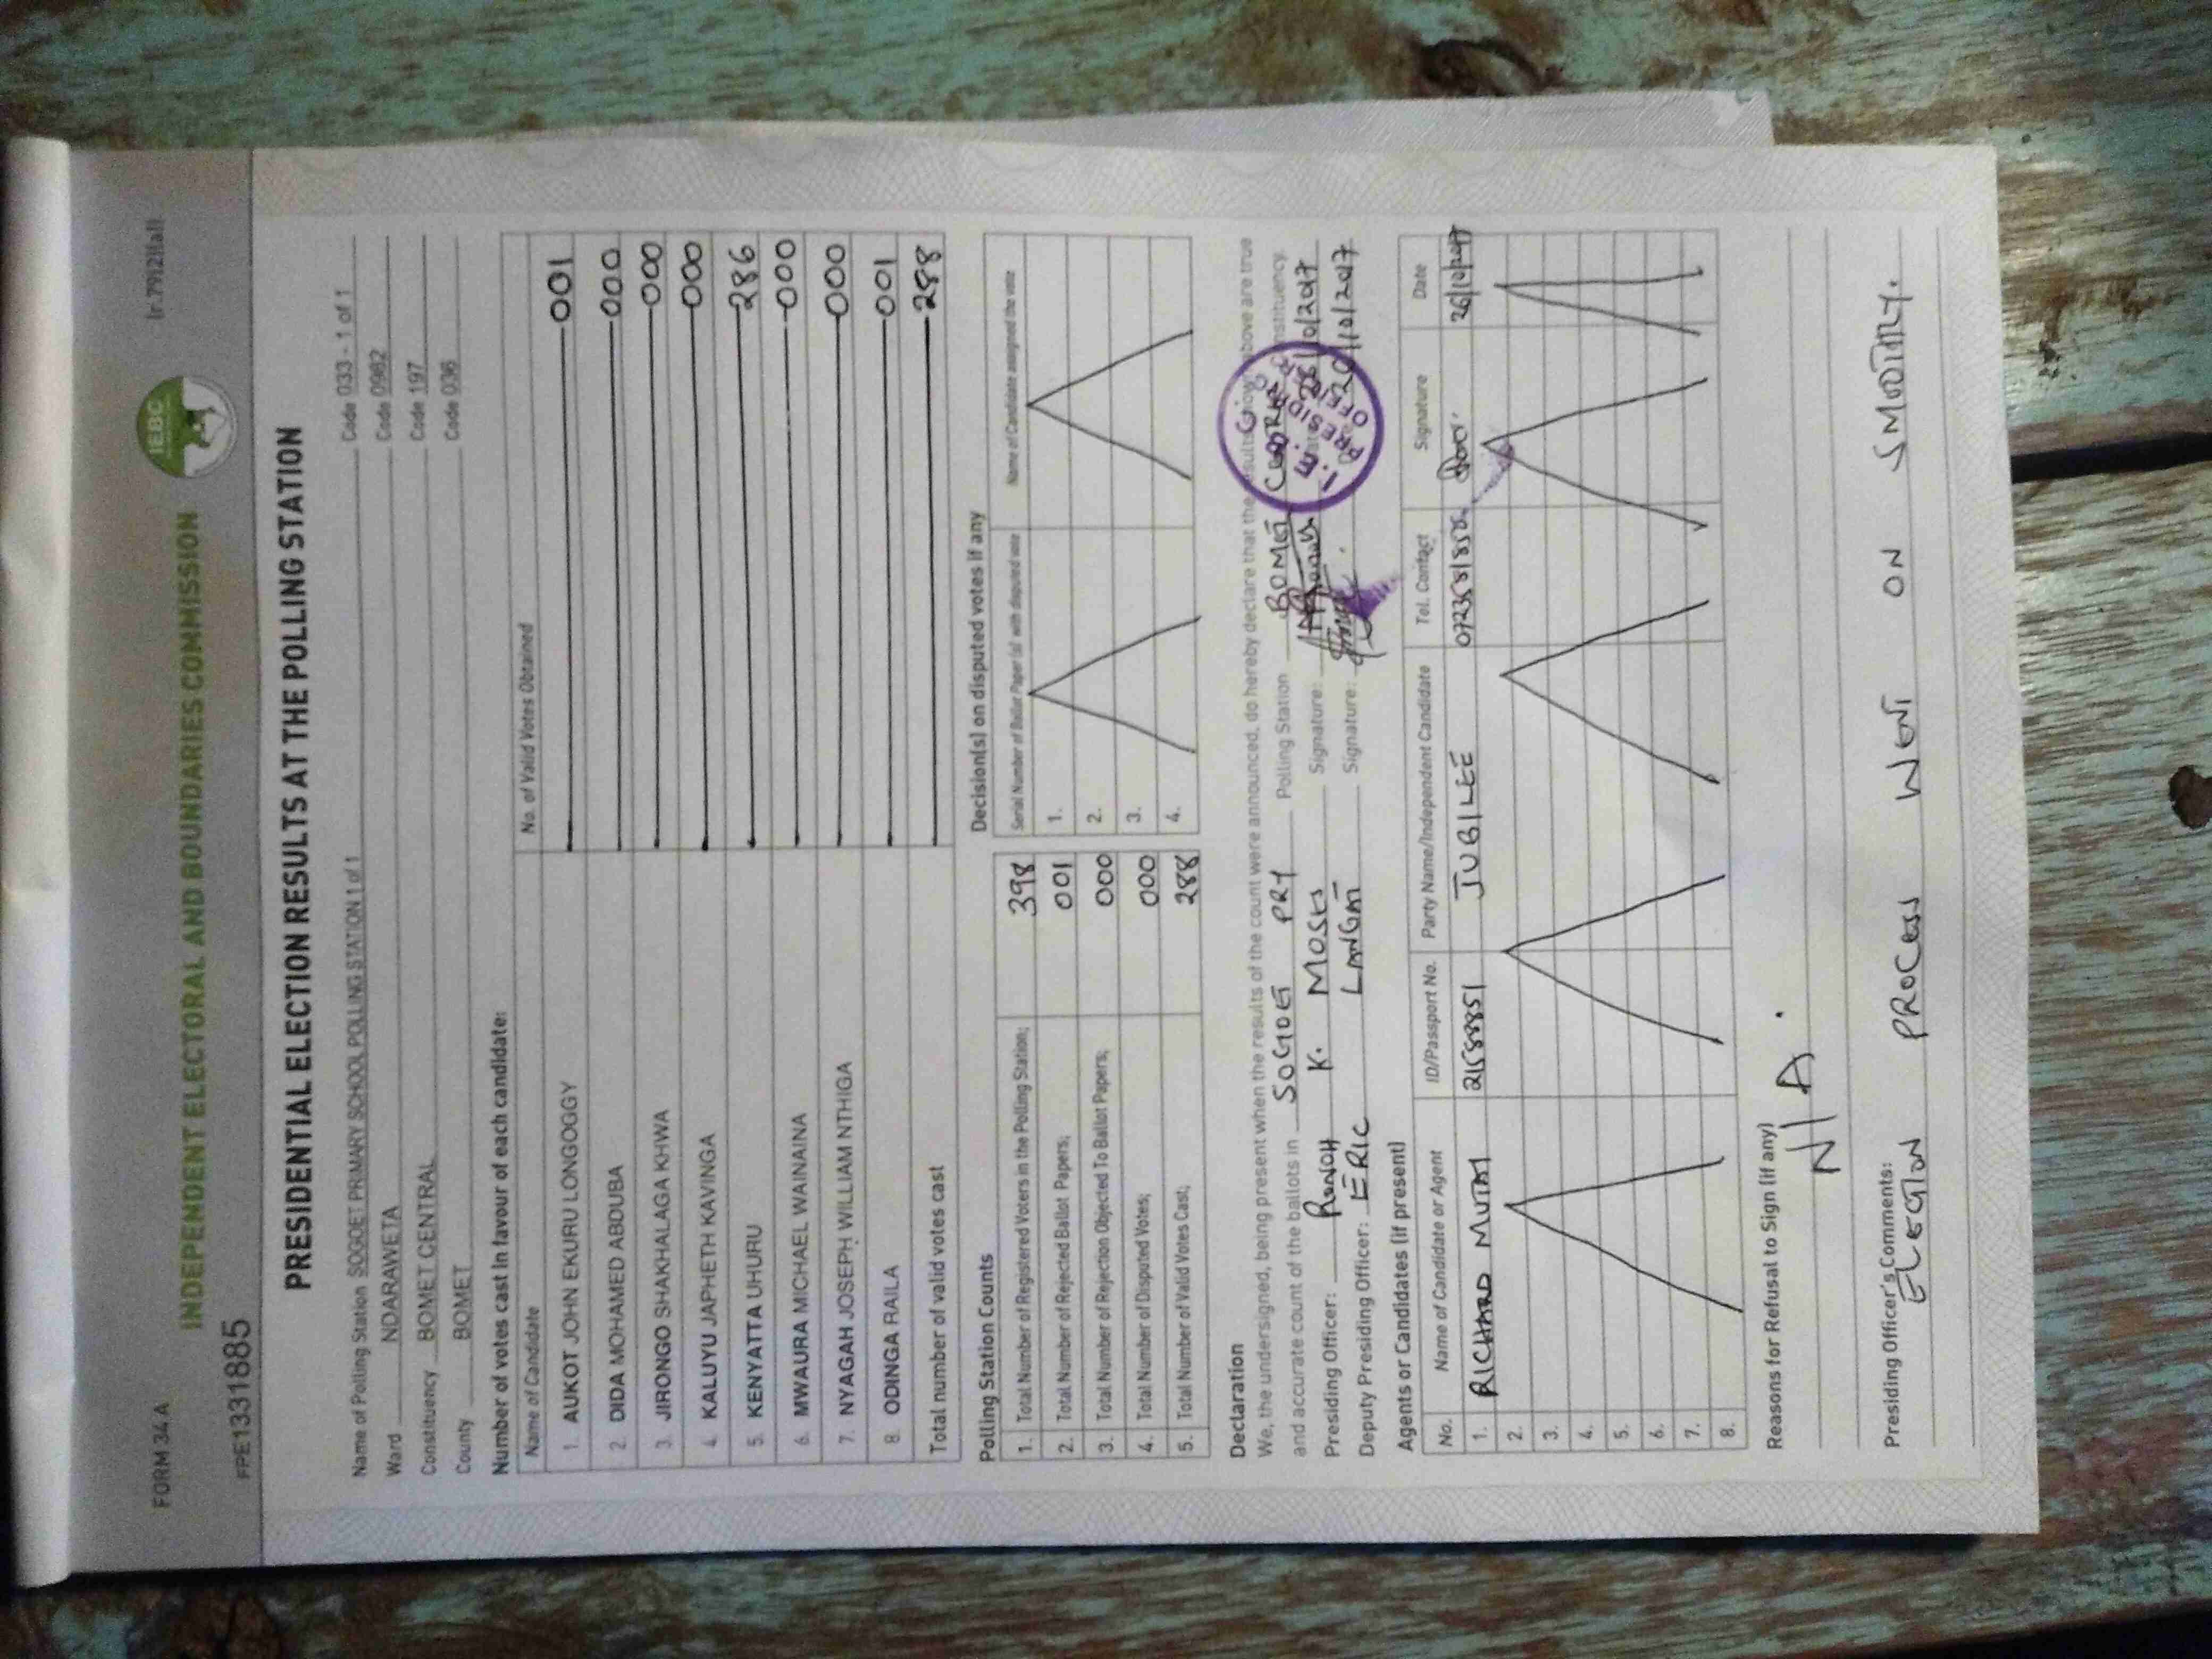 FORM 34 A
lr.7912llall
INDEPENDENT ELECTORAL AND BOUNDARIES COMMISSION
IEBC
FPE1331885
PRESIDENTIAL ELECTION RESULTS AT THE POLLING STATION
Name of Polling Station SOGOET PRIMARY SCHOOL POLLING STATION 1 of 1 Code 033 - 1 of 1
Ward NDARAWETA Code 0982
Constituency BOMET CENTRAL Code 197
County BOMET Code 036
Number of votes cast in favour of each candidate:
Name of Candidate No. of Valid Votes Obtained
1. AUKOT JOHN EKURU LONGOGGY 001
2. DIDA MOHAMED ABDUBA 000
3. JIRONGO SHAKHALAGA KHWA 000
4. KALUYU JAPHETH KAVINGA 000
5. KENYATTA UHURU 286
6. MWAURA MICHAEL WAINAINA 000
7. NYAGAH JOSEPH WILLIAM NTHIGA 000
8. ODINGA RAILA 001
Total number of valid votes cast 288
Polling Station Counts
1. Total Number of Registered Voters in the Polling Station; 398
2. Total Number of Rejected Ballot Papers; 001
3. Total Number of Rejection Objected To Ballot Papers; 000
4. Total Number of Disputed Votes; 000
5. Total Number of Valid Votes Cast; 288
Decision(s) on disputed votes if any
Serial Number of Ballot Paper (s) with disputed vote Name of Candidate assigned the vote
1.
2.
3.
4.
Declaration
We, the undersigned, being present when the results of the count were announced, do hereby declare that the results shown above are true
and accurate count of the ballots in SOGOET PRY Polling Station BOMET Constituency.
Presiding Officer: RONOH K. MOSES Signature: 26/10/2017
Deputy Presiding Officer: ERIC LANGAT Signature: 26/10/2017
I.E.B.C
PRESIDING
OFFICER
Agents or Candidates (if present)
No. Name of Candidate or Agent ID/Passport No. Party Name/Independent Candidate Tel. Contact Signature Date
1. RICHARD MUTAI 21588851 JUBILEE 26/10/2017
2.
3.
4.
5.
6.
7.
8.
Reasons for Refusal to Sign (if any)
N/A.
Presiding Officer's Comments:
ELECTION PROCESS WENT ON SMOOTHLY.